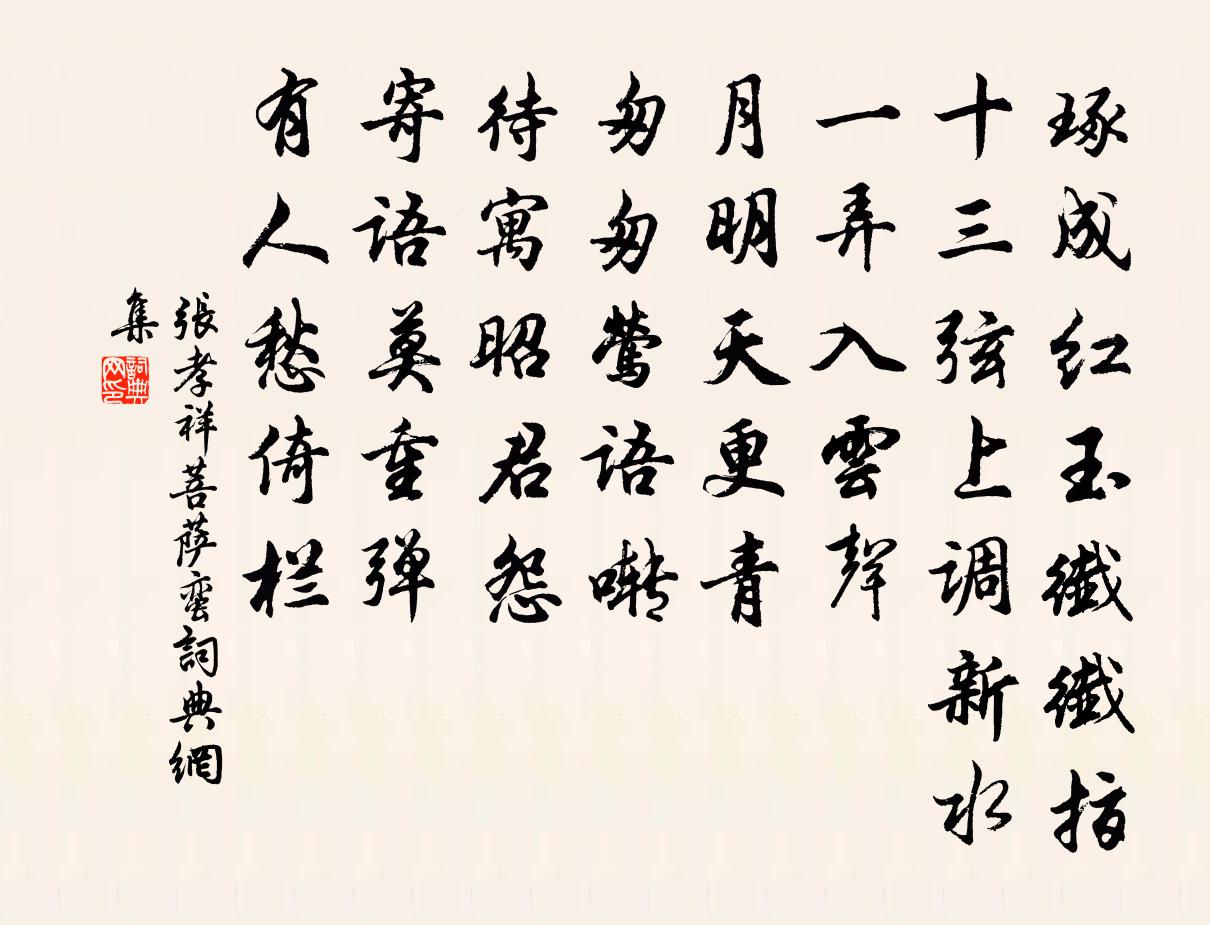 琢成红玉纖纖指
十三弦上调新水
一弄入雲聲
月明天更青
匆匆鶯語囀
待寓昭君怨
寄語莫重弹
有人愁倚栏
張孝祥菩萨蛮詞典網
集
詞典网印